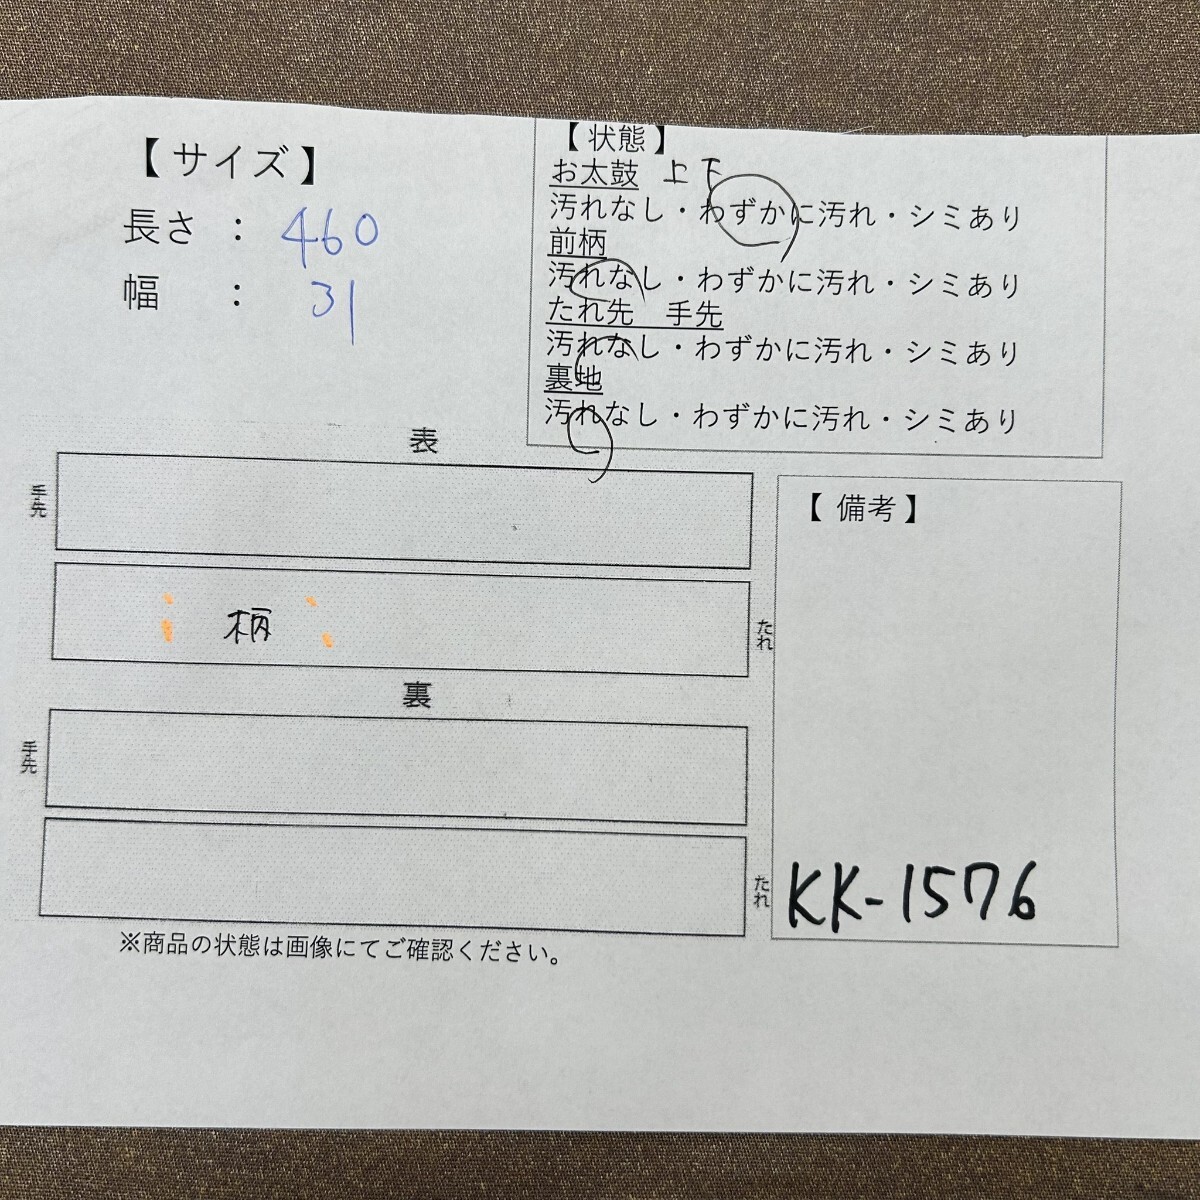 【サイズ】
長さ：460
幅：31
【状態】
お太鼓 上下
汚れなし・わずかに汚れ・シミあり
前柄
汚れなし・わずかに汚れ・シミあり
たれ先 手先
汚れなし・わずかに汚れ・シミあり
裏地
汚れなし・わずかに汚れ・シミあり
表
手先
柄
たれ
裏
手先
たれ
※商品の状態は画像にてご確認ください。
【備考】
KK-1576